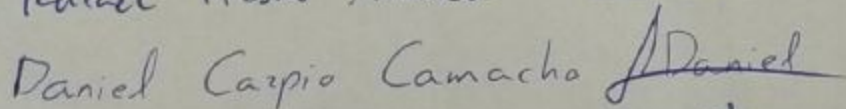 Daniel Carpio Camacho Daniel